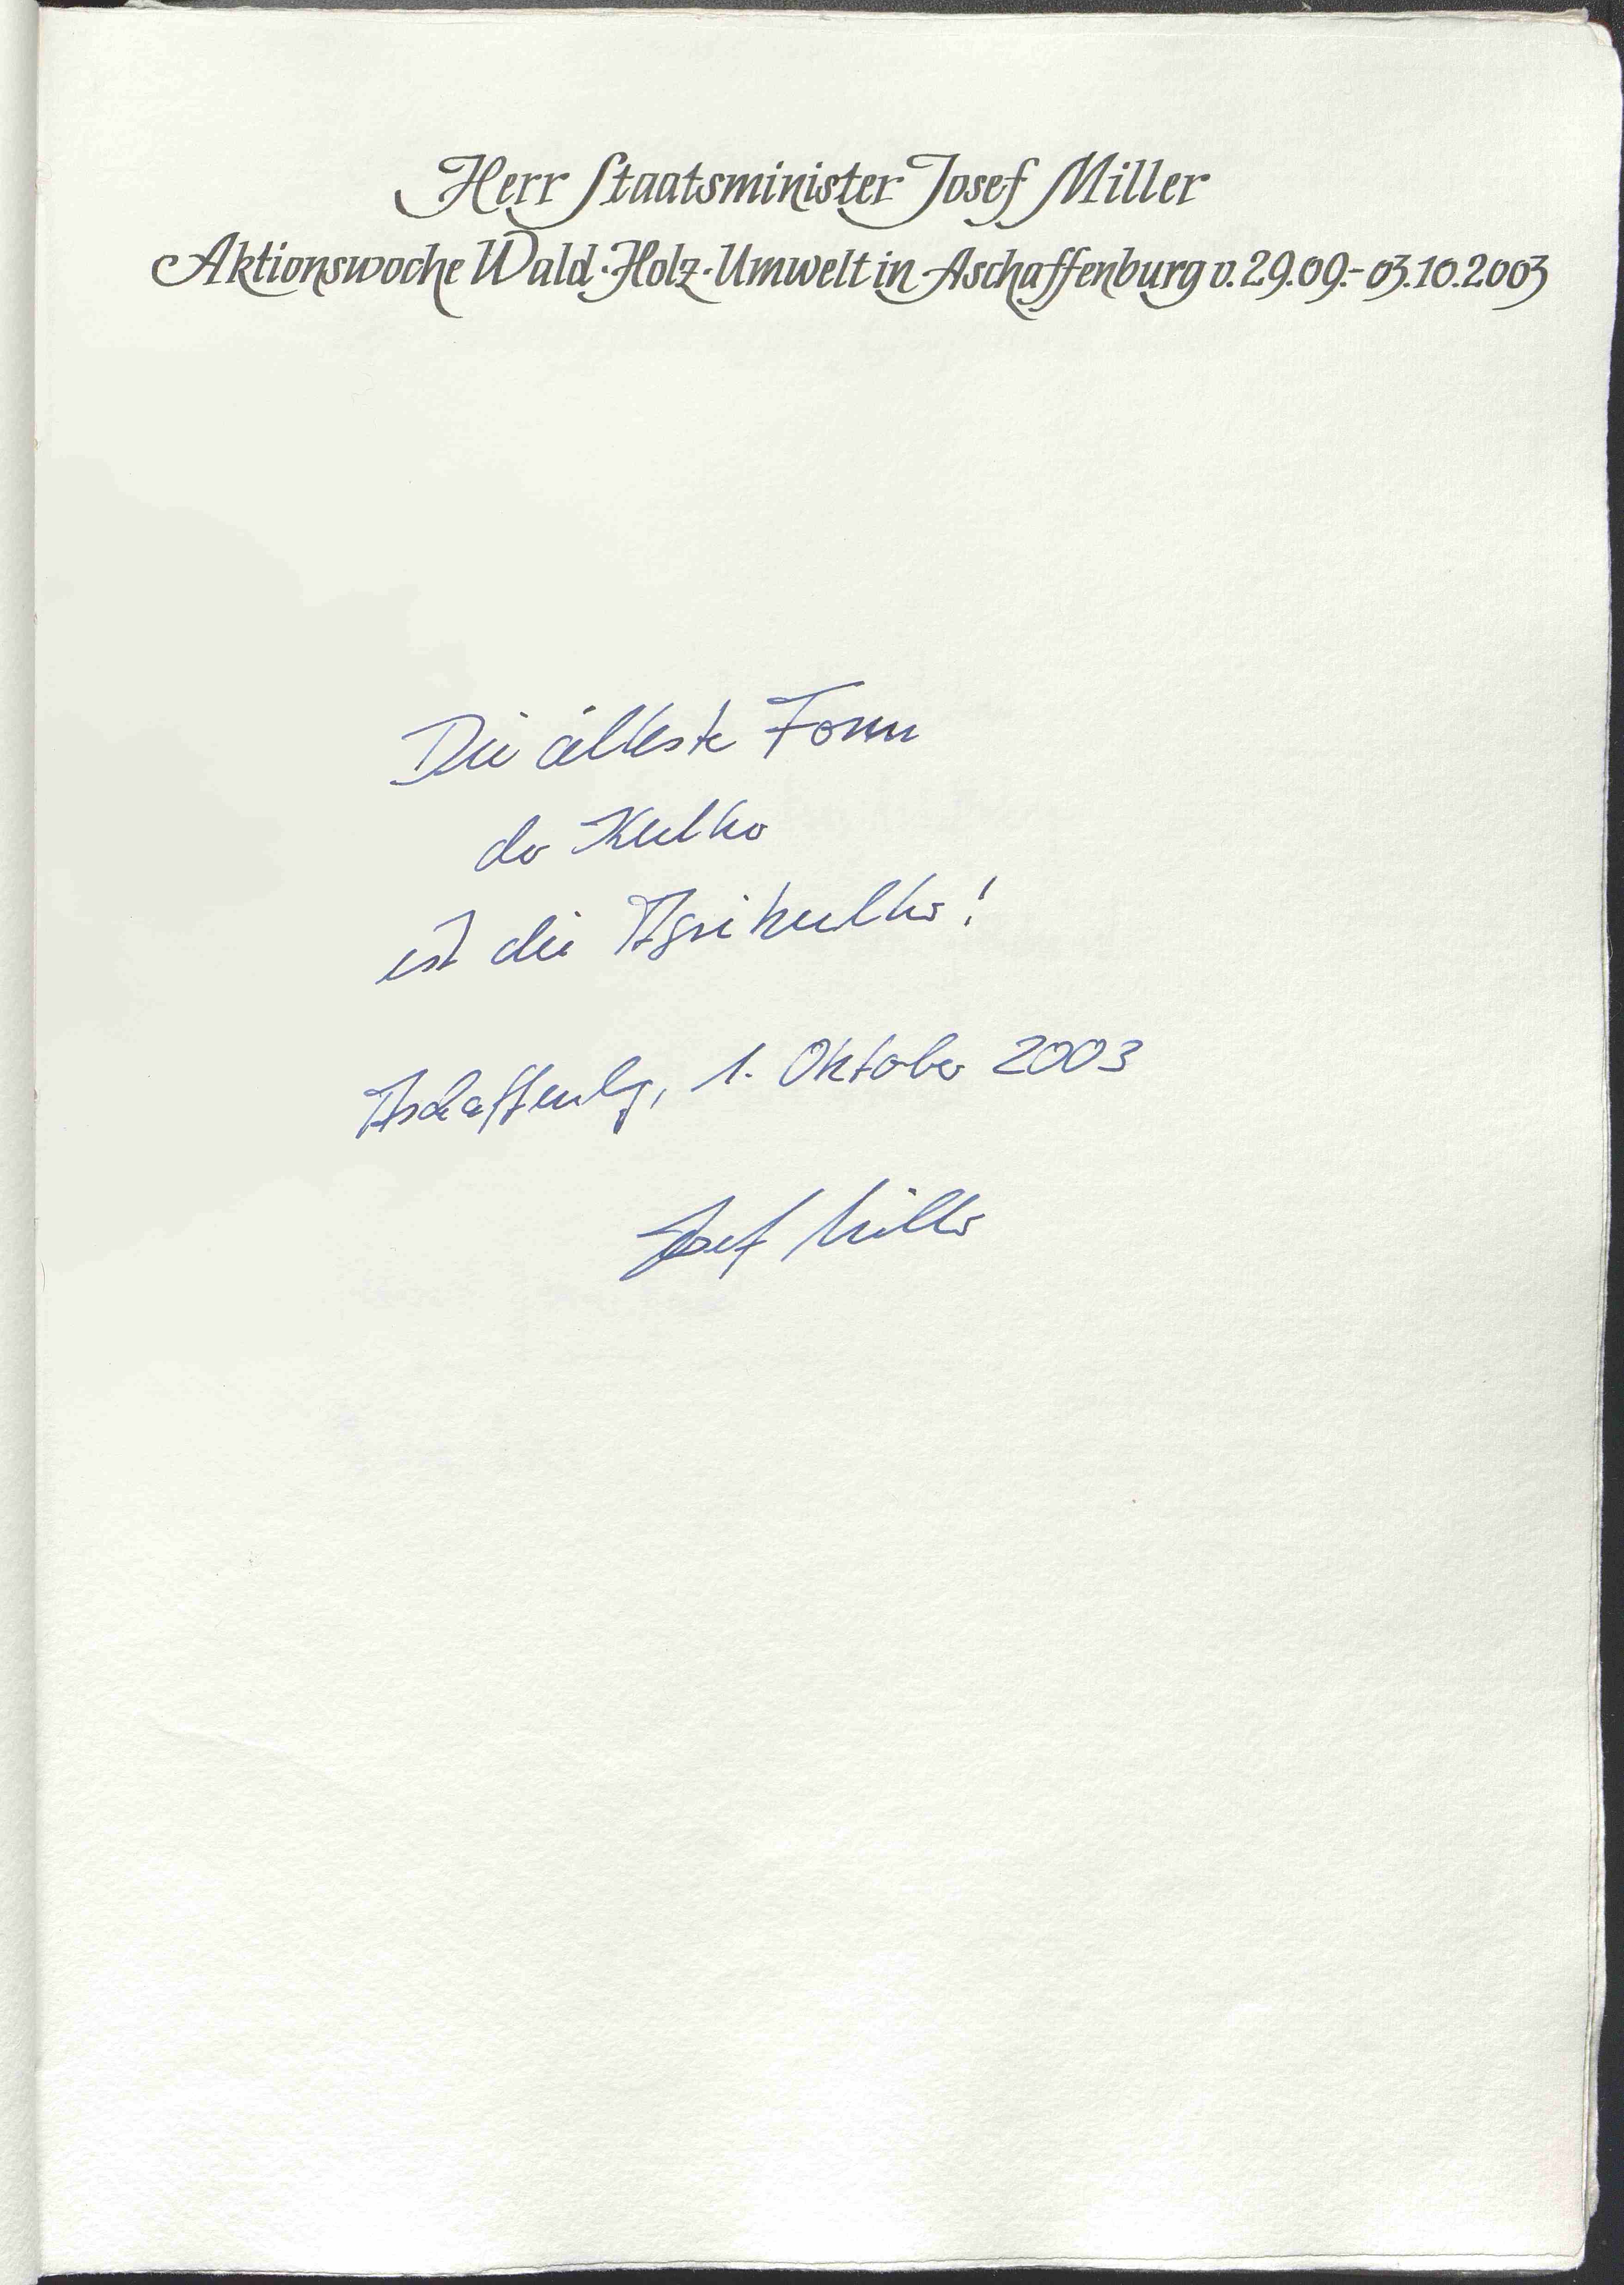 Herr Staatsminister Josef Miller
Aktionswoche Wald·Holz·Umwelt in Aschaffenburg v. 29.09.-03.10.2003
Die älteste Form
der Kultur
ist die Agrikultur!
Aschaffenbg, 1. Oktober 2003
Josef Miller